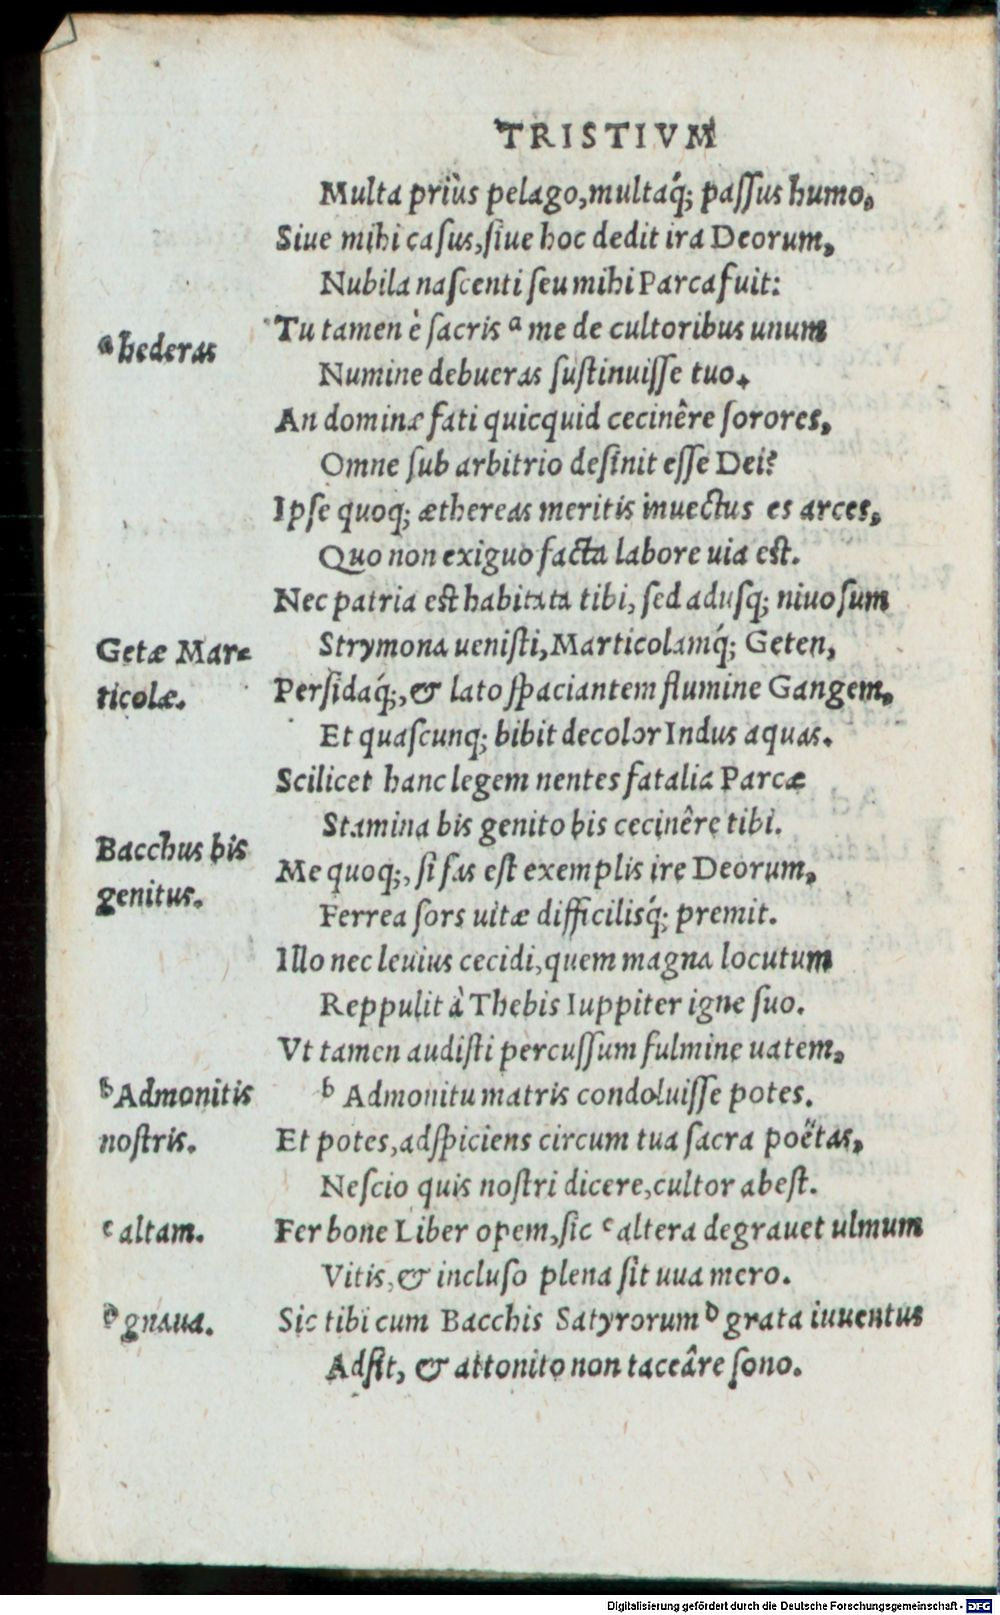 TRISTIVM
Multa priùs pelago, multaq́; passus humo,
Siue mihi casus, siue hoc dedit ira Deorum,
Nubila nascenti seu mihi Parca fuit:
Tu tamen è sacris ᵃ me de cultoribus unum
ᵃ hederas
Numine debueras sustinuisse tuo.
An dominæ fati quicquid cecinêre sorores,
Omne sub arbitrio desinit esse Dei?
Ipse quoq; æthereas meritis inuectus es arces,
Quo non exiguo facta labore uia est.
Nec patria est habitata tibi, sed adusq; niuosum
Strymona uenisti, Marticolamq́; Geten,
Getæ Mar=
ticolæ.
Persidaq́;, & lato spaciantem flumine Gangem,
Et quascunq; bibit decolor Indus aquas.
Scilicet hanc legem nentes fatalia Parcæ
Stamina bis genito bis cecinêre tibi.
Bacchus bis
genitus.
Me quoq;, si fas est exemplis ire Deorum,
Ferrea sors uitæ difficilisq́; premit.
Illo nec leuius cecidi, quem magna locutum
Reppulit à Thebis Iuppiter igne suo.
Vt tamen audisti percussum fulmine uatem,
ᵇ Admonitu matris condoluisse potes.
ᵇ Admonitis
nostris.
Et potes, adspiciens circum tua sacra poëtas,
Nescio quis nostri dicere, cultor abest.
Fer bone Liber opem, sic ᶜ altera degrauet ulmum
ᶜ altam.
Vitis, & incluso plena sit uua mero.
Sic tibi cum Bacchis Satyrorum ᴰ grata iuuentus
ᴰ gnaua.
Adsit, & attonito non taceâre sono.
Digitalisierung gefördert durch die Deutsche Forschungsgemeinschaft - DFG